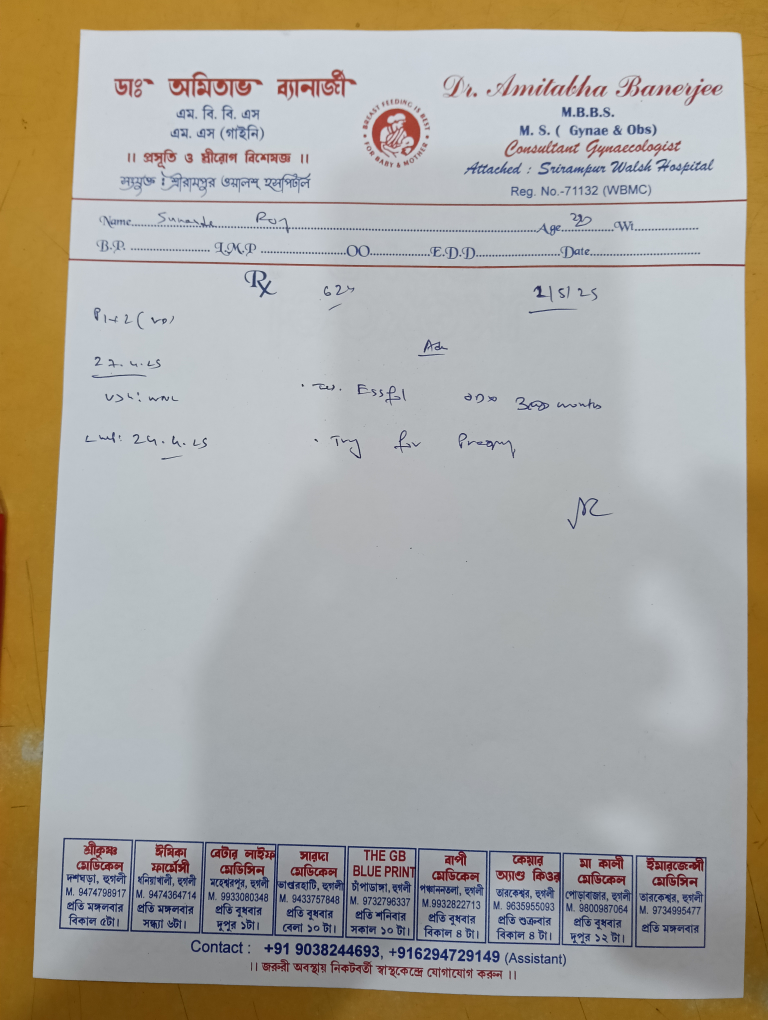 ডাঃ অমিতাভ ব্যানার্জী
এম. বি. বি. এস
এম. এস (গাইনি)
।। প্রসূতি ও স্ত্রীরোগ বিশেষজ্ঞ ।।
সংযুক্ত : শ্রীরামপুর ওয়ালশ্ হসপিটাল
BREAST FEEDING IS BEST
FOR BABY & MOTHER
Dr. Amitabha Banerjee
M.B.B.S.
M. S. ( Gynae & Obs)
Consultant Gynaecologist
Attached : Srirampur Walsh Hospital
Reg. No.-71132 (WBMC)
Name.......... Roy ..........Age..........Wt..........
B.P. .......... L.M.P ..........OO..........E.D.D..........Date..........
Rx
2/5/25
27.4.25
Adv
USG: WNL
Essfol
months
LMP: 24.4.25
Try for
শ্রীকৃষ্ণ
মেডিকেল
দশঘড়া, হুগলী
M. 9474798917
প্রতি মঙ্গলবার
বিকাল ৫টা।
ঈষিকা
ফার্মেসী
ধনিয়াখালী, হুগলী
M. 9474364714
প্রতি মঙ্গলবার
সন্ধ্যা ৬টা।
বেটার লাইফ
মেডিসিন
মহেশ্বরপুর, হুগলী
M. 9933080348
প্রতি বুধবার
দুপুর ১টা।
সারদা
মেডিকেল
ভাণ্ডারহাটি, হুগলী
M. 9433757848
প্রতি বুধবার
বেলা ১০ টা।
THE GB
BLUE PRINT
চাঁপাডাঙ্গা, হুগলী
M. 9732796337
প্রতি শনিবার
সকাল ১০ টা।
বাপী
মেডিকেল
পঞ্চাননতলা, হুগলী
M.9932822713
প্রতি বুধবার
বিকাল ৪ টা।
কেয়ার
অ্যাণ্ড কিওর
তারকেশ্বর, হুগলী
M. 9635955093
প্রতি শুক্রবার
বিকাল ৪ টা।
মা কালী
মেডিকেল
পোড়াবাজার, হুগলী
M. 9800987064
প্রতি বুধবার
দুপুর ১২ টা।
ইমারজেন্সী
মেডিসিন
তারকেশ্বর, হুগলী
M. 9734995477
প্রতি মঙ্গলবার
Contact : +91 9038244693, +916294729149 (Assistant)
।। জরুরী অবস্থায় নিকটবর্তী স্বাস্থকেন্দ্রে যোগাযোগ করুন ।।